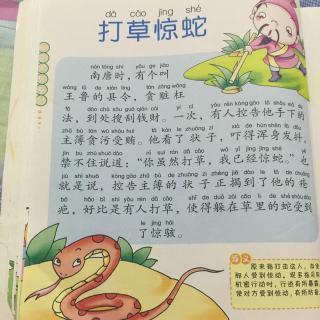 dǎ cǎo jīng shé
打草惊蛇
nán táng shí, yǒu gè jiào
南唐时,有个叫
wáng lǔ de xiàn lìng, tān zāng wǎng
王鲁的县令,贪赃枉
fǎ, dào chù sōu guā qián cái. yí cì, yǒu rén kòng gào tā shǒu xià de
法,到处搜刮钱财。一次,有人控告他手下的
zhǔ bù tān wū shòu huì. tā kàn le zhuàng zi, xià de hún shēn fā dǒu,
主簿贪污受贿。他看了状子,吓得浑身发抖,
jīn bu zhù shuō dào: nǐ suī rán dǎ cǎo, wǒ yǐ jīng jīng shé. yě
禁不住说道:“你虽然打草,我已经惊蛇。”也
jiù shì shuō, kòng gào zhǔ bù de zhuàng zi zhèng jiē dào le tā de chuāng
就是说,控告主簿的状子正揭到了他的疮
bā, hǎo bǐ shì yǒu rén dǎ cǎo, shǐ de duǒ zài cǎo lǐ de shé shòu dào
疤,好比是有人打草,使得躲在草里的蛇受到
le jīng hài
了惊骇。
释义
原来指打击这人,
那人受到惊动。现多指采
机密行动时,行迹有所暴露
使对方受到惊动,有所防备